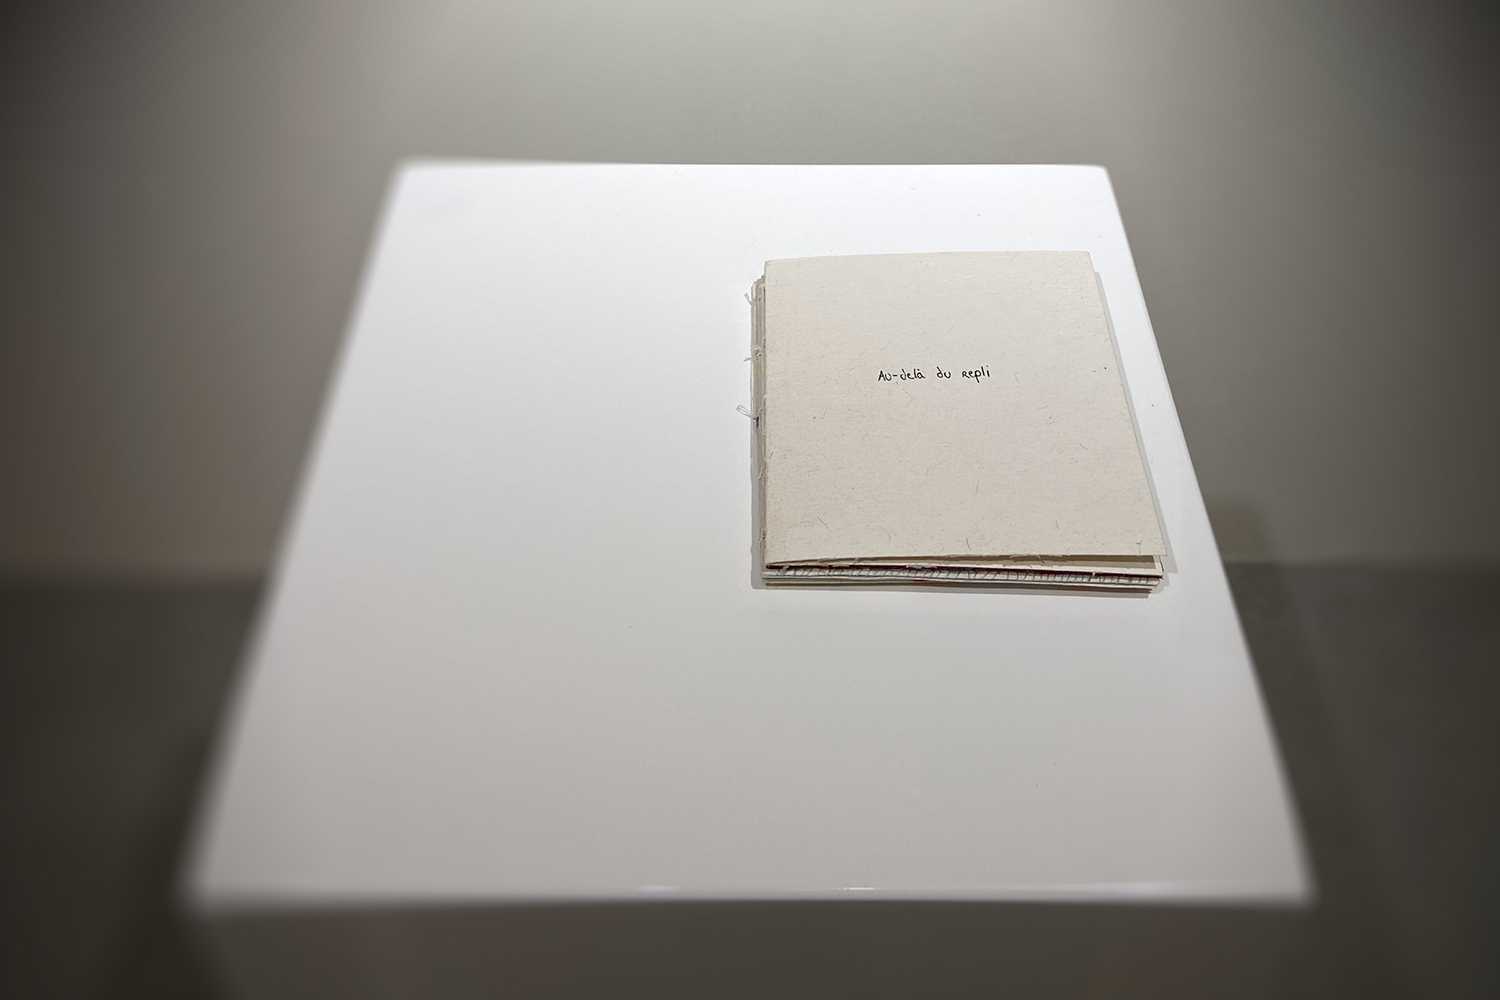 Au-delà du repli